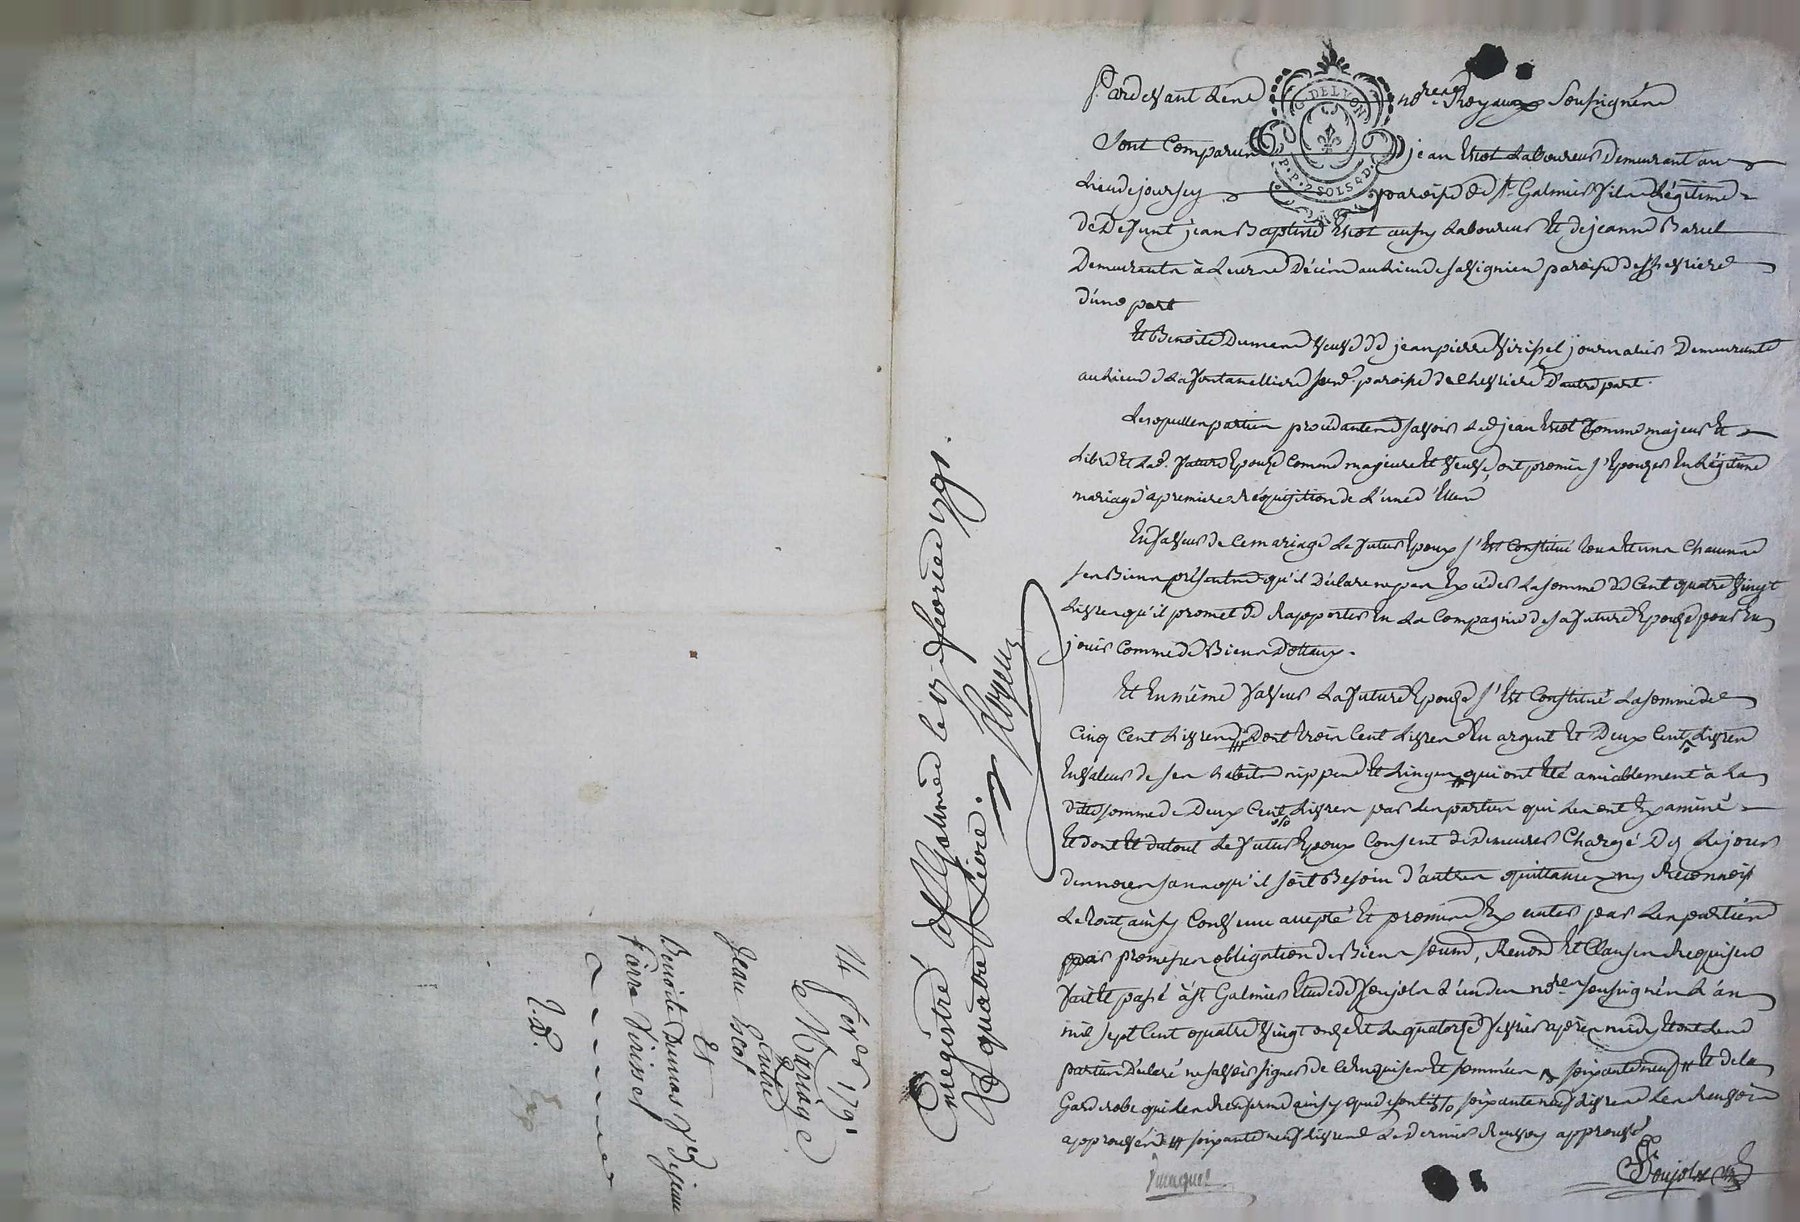 Pardevant Lene nores Royaux Soussignéz
Sont Comparus jean Escot Laboureur Demeurant au
Lieu de joursey paroisse de St Galmier fils Légitime
de Defunt jean Baptiste Escot aussy Laboureur Et de jeanne
Demeurants à Leurs Décés au Lieu de paroisse de Chevrieres
d'une part
Et Benoite Dumas veuve de jean pierre Virissel journalier Demeurante
au Lieu de La fontanelliere susd. paroisse de Chevrieres D'autre part.
Lesquelles parties procédantes savoir Led jean Escot Comme majeur Et
Libre Et Lad. future Epouse Comme majeure Et veuve, ont promis s'Epouser En Légitime
mariage à premiere Réquisition de L'une d'Elles
En faveur de Ce mariage Le futur Epoux s'Est Constitué tous Et uns Chacuns
ses Biens présents qu'il Déclare ne pas Excéder La somme de Cent quatre vingt
Livres qu'il promet de Rapporter En La Compagnie de sa future Epouse pour En
jouir Comme de Biens Dotaux.
Et En même faveur La future Epouse s'Est Constitué La somme de
Cinq Cent Livres Dont trois Cent Livres En argent Et Deux Cent Livres
En valeur de ses habits nippes Et Linges qui ont Eté amiablement à La
ditte somme de Deux Cent Livres par Les parties qui Les ont Examiné
Et dont Et du tout Le futur Epoux Consent de Demeurer Chargé Dès Le jour
des noces sans qu'il soit Besoin d'autres quittances ny Reconnois
Le tout ainsy Convenu accepté Et promis Exécuter par Les parties
par promesses obligation de Biens soumis, Renon Et Clauses Requises
fait Et passé à St Galmier Etude de Soujols L'un des nores soussignés L'an
mil sept Cent quatre vingt onze Et Le quatorze fevrier après midy Et ont Les
parties Déclaré ne savoir signer de Ce Enquises Et sommées soixante neuf Et de la
Garderobe qui Les Renferme ainsy que soixante neuf Livres Les Renvois
approuvés soixante neuf Livres Le Dernier Renvoy approuvé
Soujols
Enregistré à St Galmier le 15 fevrier 1791.
Reçu quatre Livres.
14 fer 1791
Mariage
Entre
Jean Escot
Et
Benoite Dumas ve de jean
Pierre Virissel